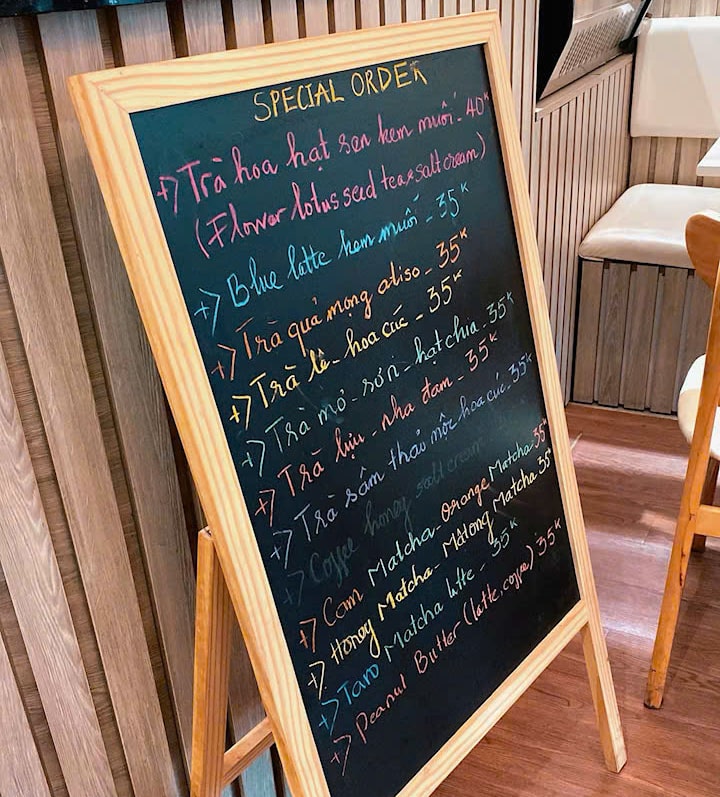 SPECIAL ORDER
+) Trà hoa hạt sen kem muối - 40K
(Flower lotus seed tea & salt cream)
+) Blue latte kem muối - 35K
+) Trà quả mọng atiso - 35K
+) Trà lê - hoa cúc - 35K
+) Trà mơ - sơn - hạt chia - 35K
+) Trà lựu - nha đam - 35K
+) Trà sâm thảo mộc hoa cúc 35K
+) Coffee honey salt cream
+) Cam Matcha Orange Matcha 35K
+) Honey Matcha - Mật ong Matcha 35K
+) Taro Matcha latte - 35K
+) Peanut Butter (latte, coffee) 35K